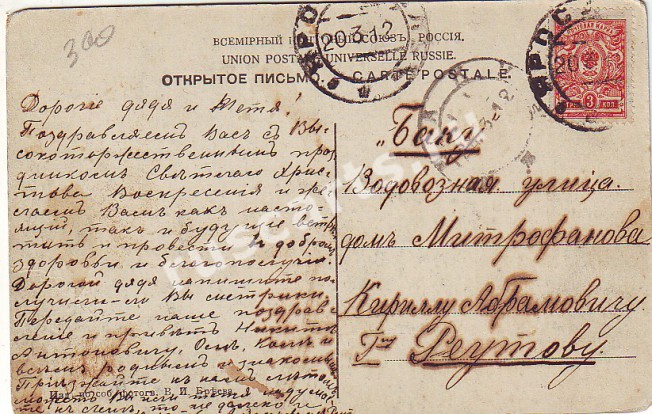 300
ВСЕМІРНЫЙ ПОЧТОВЫЙ СОЮЗЪ. РОССІЯ.
UNION POSTALE UNIVERSELLE RUSSIE.
ОТКРЫТОЕ ПИСЬМО. CARTE POSTALE.
20 3 12
3 КОП
Дорогіе дядя и тетя!
Поздравляемъ Васъ съ Вы-
сокоторжественнымъ праз
дникомъ Свѣтлаго Хрис-
това Воскресенія и же-
лаемъ Вамъ какъ насто-
ящій, такъ и будущіе встрѣ
тить и провести въ добромъ
здоровьи и благополучіи.
Дорогой дядя напишите по-
лучили-ли Вы метрики.
Передайте наше поздрав-
леніе и привѣтъ Никитѣ
Антоновичу,
всѣмъ роднымъ и знакомымъ
Пріѣзжайте къ намъ лѣтомъ
может Вы
Изд. В. И. Брѣева.
„Баку"
Водовозная улица.
домъ Митрофанова
Кириллу Абрамовичу.
Гну Реутову.